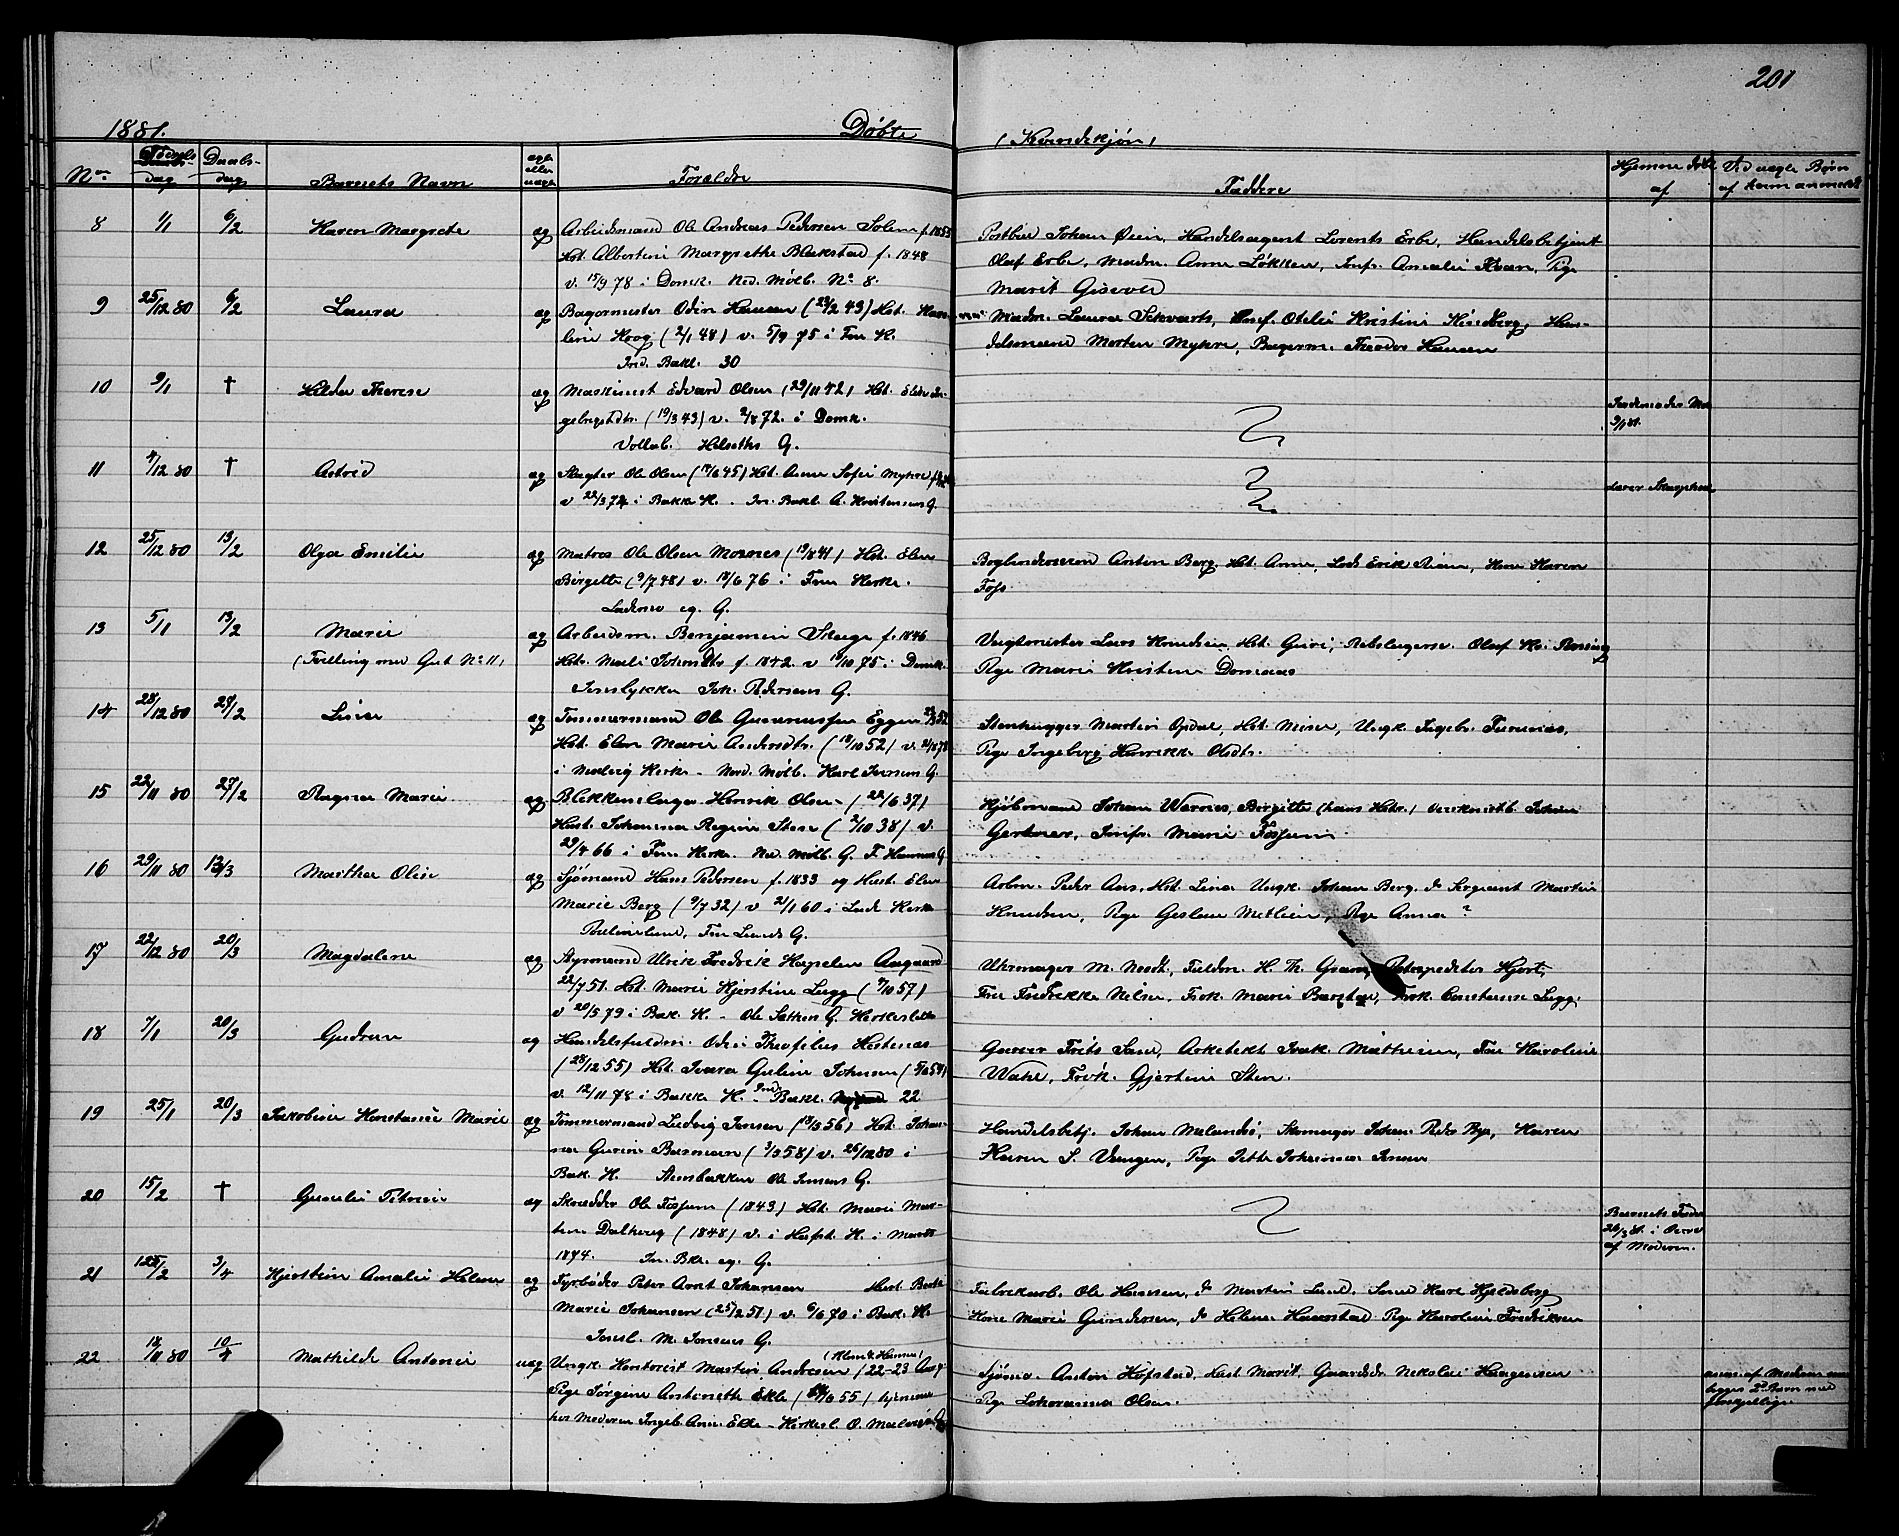 201
1881.
Døbte
(Kvindekjøn)
No
Fødsels-dag
Daabs-dag
Barnets Navn
ægte eller uægte
Forældre
Faddere
Hjemme døbt af
Ved uægte Børn af hvem anmeldt
8 1/1 6/2 Karen Margrete æg Arbeidsmand Ole Andreas Pedersen Solem f. 1853
Hst. Albertine Margrethe Blakstad f. 1848
v. 15/9 78 i Domk. Ned. Mølb. No 8.
Postbud Johan Øien, Handelsagent Lorents Erbe, Handelsbetjent
Olaf Erbe, Madm. Anne Løkken, Jnfr. Amalie Kvan, Pige
Marit Gisvold
9 25/12 80 6/2 Laura æg Bagermester Odin Hansen (23/2 43) Hst.
line Hoog (2/1 48) v. 5/9 75 i Frue K.
Ind. Bakl. 30
Madm. Laura Schvarts, Jnfr. Otelie Kristine Kindberg, Han-
delsmand Morten Myhre, Bagerm. Theodor Hansen
10 9/1 † Hilda Therese æg Maskinist Edvard Olsen (29/11 42) Hst. Elen In-
gebrigtsdtr. (19/3 43) v. 2/8 72. i Domk.
Vollab. Helseths G.
Jordemoder
9/1 81.
11 4/12 80 † Astrid æg Slagter Ole Olsen (17/6 45) Hst. Anne Sofie Myhre
v 22/3 74 i Bakke K. - In. Bakl. A. Kristensens G.
12 25/12 80 13/2 Olga Emilie æg Matros Ole Olsen Mosnes (19/8 41) Hst. Elen
Birgitte (9/7 48) v. 18/6 76 i Frue Kirke.
Lademo eg. G.
Bogbindersvend Anton Berg, Hst. Anne, Lods Erik Aune, Kone Karen
Foss
13 5/1 13/2 Marie æg Arbeidsm. Benjamin Skage f. 1846
(Tvilling med Gut No 11)
Hst. Mali Johnsdtr f. 1842. v 19/10 75 i Domk.
Ionslykka Joh. Pedersens G.
Vægtmester Lars Knudsen Hst. Guri, Rebslagersv. Olaf Kr. Rønning
Pige Marie Kristine Domaas
14 28/12 80 27/2 Lina æg Tømmermand Ole Gunnerussen Eggen
Hst. Elen Marie Andersdtr. (18/10 52) v.
i Melhus Kirke - Nord. Mølb. Karl Jensens G.
Stenhugger Martin Opdal, Hst. Mina, Ungk. Ingebr. Furunes,
Pige Ingeborg Henrikke Olsdtr.
15 22/11 80 27/2 Ragna Marie æg Blikkenslager Henrik Olsen (22/6 37)
Hust. Johanna Regine Steen (2/10 38) v.
29/4 66 i Frue Kirke. Ned. Mølb. G. F. Hannes G.
Kjøbmand Johan Wærnes, Bergitte (hans Hstr.) Værkmstb. Johan
Gertner, Jnfr. Marie Fossum
16 29/11 80 13/3 Martha Oline æg Sjømand Hans Pedersen f. 1833 og Hust. Elen
Marie Berg (9/7 32) v 21/1 60 i Lade Kirke
Paulinelund, Fru Lunds G.
Arbm. Peder Aas, Hst. Lina Ungk. Johan Berg. do Sergeant Martin
Knudsen, Pige Gesken Metlien, Pige Anna ?
17 22/12 80 20/3 Magdalene æg Styrmand Ulrik Fredrik Hagelen Aagaard
22/7 51. Hst. Marie Kjerstine Lugg (9/10 57)
v 20/5 79 i Bak. K. - Ole Sathens G. Kirkesletten
Uhrmager M. Nordt, Fuldm. H. Th. Gram, Postexpeditør Hjort,
Fru Fredrikke Nilsen, Frøk. Marie Barstad, Frøk. Constance Lugg.
18 7/1 20/3 Gudrun æg Handelsfuldm. Odin Theofilus Hestenes
(28/12 55) Hst. Ivara Guline Johnsen (5/6 54)
v. 12/11 78 i Bakke K. - Ind. Bakl. 22
Garver Frits Sand, Arkitekt Isak Mathiesen, Fru Karoline
Wahl, Frøk. Gjertine Sten.
19 25/1 20/3 Jakobine Konstance Marie æg Tømmermand Ludvig Jensen (18/3 56) Hst. Johan-
na Gurine Busman (3/3 58) v. 26/12 80 i
Bak. K. Stensbakken Ole Jensens G.
Handelsbetj. Johan Melandsø, Skomager Johan Peder Bye, Karen
Karen S. Vangen, Pige Jette Johanna Jensen
20 15/2 † Gunelie Petrine æg Skrædder Ole Fossum (1843) Hst. Marie Mar-
tine Dalberg (1848) v. i Hafst. K. i Marts
1874. In. Bk. eg. G.
Barnets Fader
26/3 81. i Overv.
af Moderen.
21 3/4 Kjerstine Amalie Helene æg Fyrbøder Peter Arnt Johansen Hst. Berth
Marie Johansen (25/2 51) v. 6/6 70 i Bak. K.
Jonsl. M. Jonsens G.
Fabrikarb. Ole Hansen, do Martin Lund. Smed Karl Kjeldsberg
Kone Marie Gundersen, do Helene Haarstad Pige Karoline Fredriksen
22 18/11 80 10/4 Mathilde Antonie uæg Ungk. Kontorist Martin Andresen (22-23 Aar)
Pige Jørgine Antonette Ekle ( /6 55) hjemme
hos Moderen Ingeb. Ann. Ekle - Kirkesl. O. Malvigs G.
Sjøm. Anton Hofstad, Hst Marit, Gaardsdr. Nikolai Haagensen
Pige Lohranna Olsen.
anm. af Moderen